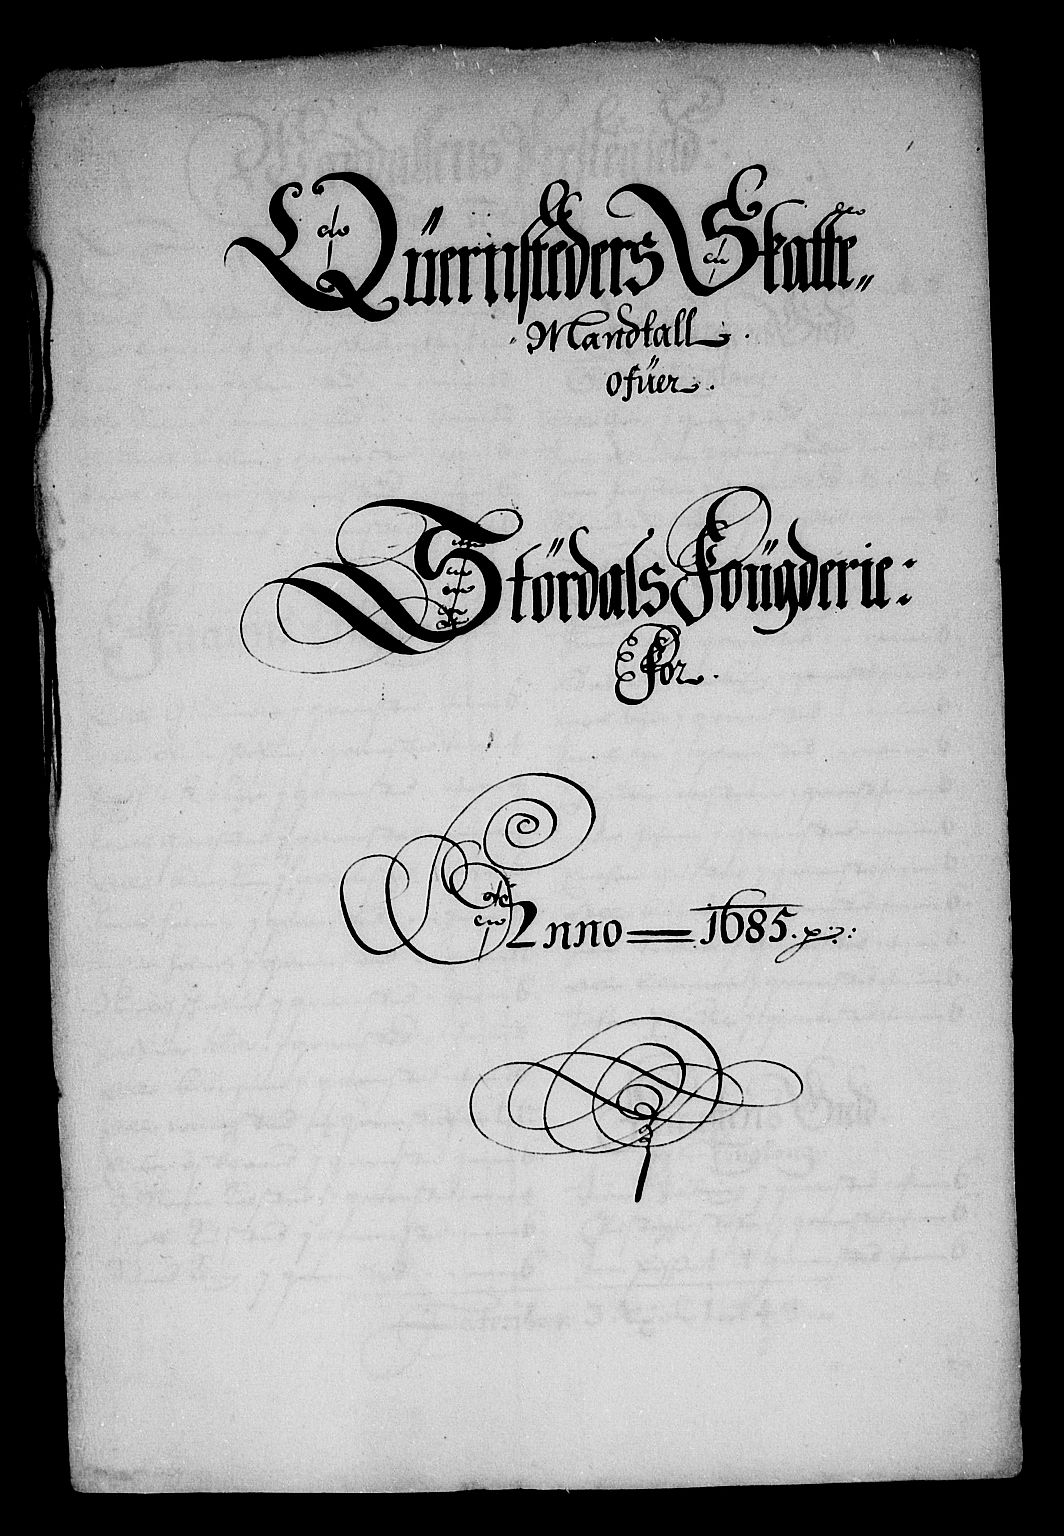 Qüernsteders Skatte„
Mandtall
ofüer
Stördals Foügderie:
For
Anno 1685